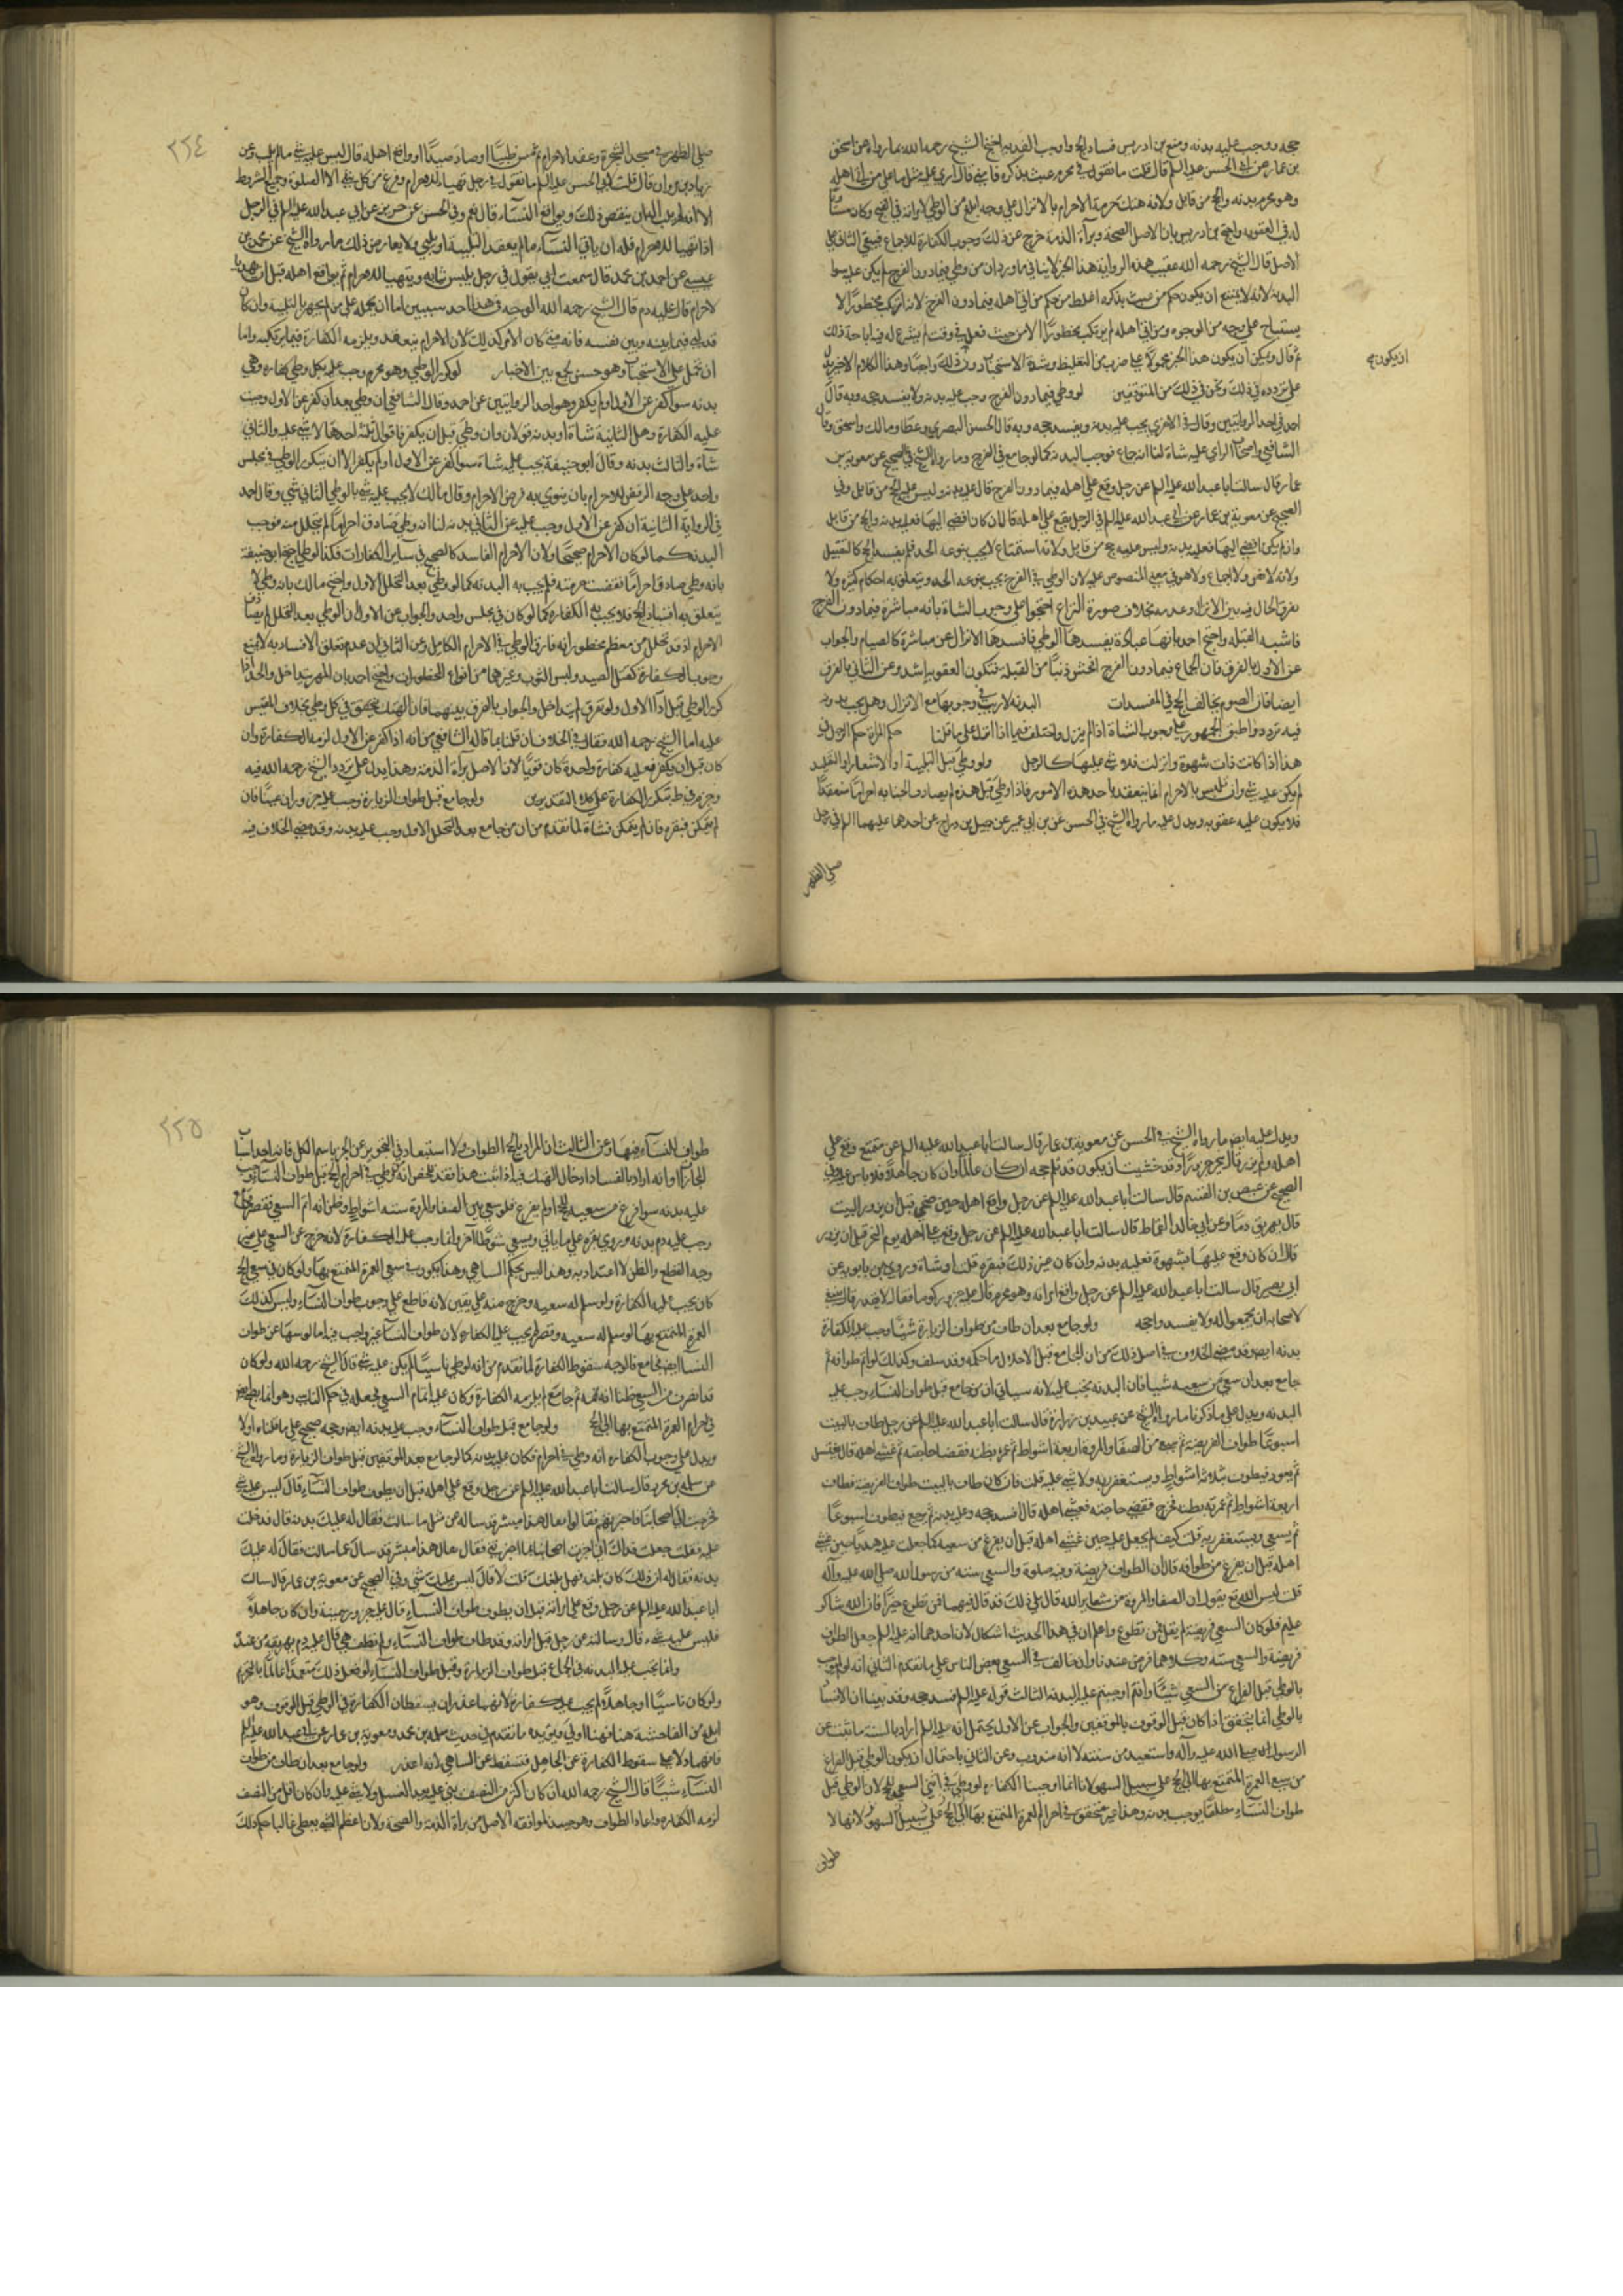 حجه ووجب عليه بدنه ومنع بن ادريس فساد الحج واوجب الفديه احتج الشيخ رحمه الله بما رواه عن اسحق
بن عمار عن ابي الحسن عليه السلم قال قلت ما تقول في محرم عبث بذكره فامنى قال ارى عليه مثل ما على من اتى اهله
وهو محرم بدنه والحج من قابل ولانه هتك حرمة الاحرام بالانزال على وجه ابلغ من الوطي لامرانه في القبح وكان مساويا
له في العقوبه واحتج بن ادريس بان الاصل الصحة وبرآءة الذمة خرج عن ذلك وجوب الكفارة للاجماع فيبقى الثاني على
الاصل قال الشيخ رحمه الله عقيب هذه الرواية هذا الخبر لا ينافي ما وردان من وطي فيما دون الفرج لم يكن عليه سوا
البدنه لانه لا يمتنع ان يكون حكم من عبث بذكره اغلظ من حكم من اتى اهله فيما دون الفرج لانه ارتكب محظورا لا
يستباح على وجه من الوجوه ومن اتى اهله لم يرتكب محظورا الا من حيث فعل في وقت لم يشرع له فيه اباحة ذلك
ثم قال ويمكن ان يكون هذا الخبر محمولا على ضرب من التغليظ وشدة الاستحباب دون ان يكون ذلك واجبا وهذا الكلام الاخير يدل
ان يكون
على تردده في ذلك ونحن في ذلك من المتوقفين لو وطي فيما دون الفرج وجب عليه بدنه ولا يفسد حجه وبه قال
احد في احد الروايتين وقال في الاخرى يجب عليه بدنه ويفسد حجه وبه قال الحسن البصري وعطا ومالك واسحق وقال
الشافعي واصحاب الراي عليه شاة لنا انه جماع فوجب البدنه كما لو جامع في الفرج وما رواه الشيخ في الصحيح عن معوية بن
عمار قال سالت ابا عبد الله عليه السلم عن رجل وقع على اهله فيما دون الفرج قال عليه بدنه وليس عليه الحج من قابل وفي
الصحيح عن معوية بن عمار عن ابي عبد الله عليه السلم في الرجل يقع على اهله قال ان كان افضى اليها فعليه بدنه والحج من قابل
وان لم يكن افضى اليها فعليه بدنه وليس عليه حج من قابل ولانه استمتاع لا يجب بنوعه الحد فلم يفسد الحج كالتقبيل
ولانه لا نص ولا اجماع ولا هو في معنى المنصوص عليه لان الوطي في الفرج يجب بنوعه الحد ويتعلق به احكام كثيرة ولا
يفرق الحال فيه بين الانزال وعدمه بخلاف صورة النزاع احتجوا على وجوب الشاة بانه مباشرة فيما دون الفرج
فاشبه القبله واحتج احد بانها عبادة يفسدها الوطي فافسدها الانزال عن مباشرة كالصيام والجواب
عن الاول بالفرق فان الجماع فيما دون الفرج افحش ذنبا من القبلة فتكون العقوبة اشد وعن الثاني بالفرق
ايضا فان الصوم يخالف الحج في المفسدات البدنه لا ريب في وجوبها مع الانزال وهل يجب بدونه
فيه تردد واطبق الجمهور على وجوب الشاة اذا لم ينزل واختلف فيما اذا انزل على ما قلنا حكم المراة حكم الرجل في
هذا اذا كانت ذات شهوة وانزلت فلا شي عليها كالرجل ولو وطي قبل التلبية او الاشعار او التقليد
لم يكن عليه شي وان تلبس بالاحرام انما ينعقد باحد هذه الامور فاذا وطي قبل هذه لم يصادف الجنايه احراما منعقدا
فلا يكون عليه عقوبه ويدل عليه ما رواه الشيخ في الحسن عن بن ابي عمير عن جميل بن دراج عن احدهما عليهما السلم في رجل
صلى الظهر
٢٢٤
صلى الظهر في مسجد الشجرة وعقد الاحرام ثم مس طيبا او صاد صيدا او واقع اهله قال ليس عليه شي ما لم يلب وعن
زياد بن مروان قال قلت لابي الحسن عليه السلم ما تقول في رجل تهيا للاحرام وفرغ من كل شي الا الصلوة وجميع الشروط
الا انه لم يلب اله ان ينقض ذلك ويواقع النسآء قال نعم وفي الحسن عن حريز عن ابي عبد الله عليه السلم في الرجل
اذا تهيا للاحرام فله ان ياتي النسآء ما لم يعقد التلبية او يلبي ولا يعارض ذلك ما رواه الشيخ عن محمد بن
عيسى عن احمد بن محمد قال سمعت ابي يقول في رجل يلبس ثيابه ويتهيا للاحرام ثم يواقع اهله قبل ان يهل با
لاحرام قال عليه دم قال الشيخ رحمه الله الوجه في هذا احد سببين اما ان يحمله على من لم يجهر بالتلبية وان كان
قد لبى فيما بينه وبين نفسه فانه متى كان الامر كذلك لان الاحرام ينعقد ويلزمه الكفارة فيما يرتكبه واما
ان تحمل على الاستحباب وهو حسن لجمع بين الاخبار لو كرر الوطي وهو محرم وجب عليه بكل وطي كفاره وهي
بدنه سوا كفر عن الاول او لم يكفر وهو احد الروايتين عن احد وقال الشافعي ان وطي بعد ان كفر عن الاول وجبت
عليه الكفارة وهل الثانية شاة او بدنه قولان وان وطي قبل ان يكفر فاقوال ثلثة احدها لا شي عليه والثاني
شاة والثالث بدنه وقال ابو حنيفة يجب عليه شاة سوا كفر عن الاول او لم يكفر الا ان يتكرر الوطي في مجلس
واحد على وجه الرفض للاحرام بان ينوي به فرض الاحرام وقال مالك لا يجب عليه شي بالوطي الثاني شي وقال احد
في الرواية الثانية ان كفر عن الاول وجب عليه عن الثاني بدنه لنا انه وطي صادف احراما لم يتحلل منه فوجب
البدنه كما لو كان الاحرام صحيحا ولان الاحرام الفاسد كالصحيح في ساير الكفارات فكذا الوطي احتج ابو حنيفة
بانه وطي صادف احراما نقصت حرمته فلم يجب به البدنه كما لو وطي بعد التحلل الاول واحتج مالك بانه وطي لا
يتعلق به افساد الحج فلا يجب به الكفارة كما لو كان في مجلس واحد والجواب عن الاول ان الوطي بعد التحلل لم يصادف
الاحرام اذ قد تحلل من معظم محظوراته فارق الوطي في الاحرام الكامل وعن الثاني ان عدم تعلق الافساد به لا يمنع
وجوب الكفارة كقتل الصيد ولبس الثوب وغيرهما من انواع المحظورات واحتج احد بان المهر يتداخل والحد اذا
كرر الوطي قبل اداء الاول ولو تفرق لم يتداخل والجواب بالفرق بينهما فان الهتك يتحقق في كل وطي بخلاف المقيس
عليه اما الشيخ رحمه الله فقال في الخلاف ان قلنا بما قاله الشافعي من انه اذا كفر عن الاول لزمه الكفارة وان
كان قبل ان يكفر فعليه كفارة واحدة كان قويا لان الاصل براءة الذمة وهذا يدل على تردد الشيخ رحمه الله فيه
وجزم في ط بتكرير الكفارة على كلا التقديرين ولو جامع قبل طواف الزيارة وجب عليه جزور ان عينا فان
لم يتمكن فبقره فان لم يتمكن فشاة لما تقدم من ان من جامع بعد التحلل الاول وجب عليه بدنه وقد مضى الخلاف فيه
ويدل عليه ايض ما رواه الشيخ في الحسن عن معوية بن عمار قال سالت ابا عبد الله عليه السلم عن متمتع وقع على
اهله ولم يزر قال ينحر جزورا وقد خشيت ان يكون قد ثلم حجه ان كان عالما وان كان جاهلا فلا باس عليه وفي
الصحيح عن عيص بن القسم قال سالت ابا عبد الله عليه السلم عن رجل واقع اهله حين ضحى قبل ان يزور البيت
قال يهريق دما وعن ابي خالد القماط قال سالت ابا عبد الله عليه السلم عن رجل وقع على اهله يوم النحر قبل ان يزور
قال ان كان وقع عليها بشهوة فعليه بدنه وان كان غير ذلك فبقره قلت او شاة وروى بن بابويه عن
ابي بصير قال سالت ابا عبد الله عليه السلم عن رجل واقع امراته وهو محرم قال عليه جزور كوما فقال لا يقدر قال ينبغي
لاصحابه ان يجمعوا له ولا يفسدوا حجه ولو جامع بعد ان طاف من طواف الزيارة شيئا وجب عليه الكفارة
بدنه ايض وقد مضى الخلاف في اصل ذلك من ان الجماع قبل الاحلال ما حكمه وقد سلف وكذلك لو اتم طوافه ثم
جامع بعد ان سعى من سعيه شيا فان البدنه يجب عليه لانه سياتي ان من جامع قبل طواف النسآء وجب عليه
البدنه ويدل على ما ذكرنا ما رواه الشيخ عن عبيد بن زرارة قال سالت ابا عبد الله عليه السلم عن رجل طاف بالبيت
اسبوعا طواف الفريضة ثم سعى بين الصفا والمروة اربعة اشواط ثم غمزه بطنه فقضا حاجته ثم غشي اهله قال يغتسل
ثم يعود فيطوف ثلاثة اشواط ويستغفر ربه ولا شي عليه قلت فان كان طاف بالبيت طواف الفريضة فطاف
اربعة اشواط ثم غمزته بطنه فخرج فقضى حاجته فغشي اهله قال افسد حجه وعليه بدنه ثم يرجع فيطوف اسبوعا
ثم يسعى ويستغفر ربه قلت كيف لم يجعل عليه حين غشي اهله قبل ان يفرغ من سعيه كما جعلت عليه هديا حين غشي
اهله قبل ان يفرغ من طوافه قال ان الطواف فريضة وفيه صلوة والسعي سنه من رسول الله صلى الله عليه وآله
قلت ليس الله تع يقول ان الصفا والمروة من شعاير الله قال بلى ذلك وقد قال فيهما فمن تطوع خيرا فان الله شاكر
عليم فلو كان السعي فريضة لم يقل فمن تطوع واعلم ان في هذا الحديث اشكال لان احدهما انه عليه السلم جعل الطواف
فريضة والسعي سنه وكلاهما فرض عندنا وان خالف في السعي بعض الناس على ما تقدم الثاني انه لم يوجب
بالوطي قبل الفراغ من السعي شيئا وانتم اوجبتم عليه البدنه الثالث قوله عليه السلم افسد حجه وقد بينا ان الافساد
بالوطي انما يتحقق اذا كان قبل الوقوف بالموقفين والجواب عن الاول يحتمل انه عليه السلم اراد بالسنة ما ثبت عن
الرسول صلى الله عليه وآله واستفيد من سنته لا انه مندوب وعن الثاني باحتمال ان يكون الوطي قبل الفراغ
من سعي العمرة المتمتع بها الى الحج على سبيل السهو لانا انما اوجبنا الكفاره لو وطي في اثنى السعي للحج لان الوطي قبل
طواف النسآء مطلقا يوجب بدنه وهذا غير متحقق في احرام العمرة المتمتع بها الى الحج على سبيل السهو لانها لا
طواف
٢٢٥
طواف للنسآء فيها وعن الثالث ان المراد بالحج الطواف ولا استبعاد في التجوز عن الجزء باسم الكل فانه احد اسباب
المجاز او انه اراد بالفساد ادخال الهتك فيه اذا ثبت هذا فقد تلخص انه لو وطي في احرام الحج قبل طواف النسآء وجب
عليه بدنه سوا فرغ من سعيه للحج او لم يفرغ فلو سعى بين الصفا والمروة سته اشواط وظن انه اتم السعي فقصر وجامع
وجب عليه دم بدنه وروي بقره على ما ياتي ويسعى شوطا آخر وانما وجب عليه الكفارة لانه خرج عن السعي على غير
وجه القطع والظن لا اعتداد به وهذا ليس بحكم الساهي وهذا يكون في سعي العمرة المتمتع بها ولو كان في سعي الحج
كان يجب عليه الكفارة ولو سلم له سعيه وخرج منه على يقين لانه قاطع على وجوب طواف النسآء وليس كذلك
العمرة المتمتع بها لو سلم له سعيه وقصر لم يجب عليه الكفاره لان طواف النسآء غير واجب فيها اما لو سها عن طواف
النسآ ايض فجامع فالوجه سقوط الكفارة لما تقدم من انه لو وطي ناسيا لم يكن عليه شي قال الشيخ رحمه الله ولو كان
قد انصرف من السعي ظنا انه تممه ثم جامع لم يلزمه الكفارة وكان عليه اتمام السعي فجعله في حكم الناسي وهو انما يصح ايض
في احرام العمرة المتمتع بها الى الحج ولو جامع قبل طواف النسآء وجب عليه بدنه ايض وحجه صحيح على ما قلناه اولا
ويدل على وجوب الكفاره انه وطي في احرام فكان عليه بدنه كما لو جامع بعد الموقفين قبل طواف الزيارة وما رواه الشيخ
عن سلمة بن محرز قال سالت ابا عبد الله عليه السلم عن رجل وقع على اهله قبل ان يطوف طواف النسآء قال ليس عليه شي
فخرجت الى اصحابنا فاخبرتهم فقالوا اتقاك هذا ميسر قد ساله عن مثل ما سالت فقال له عليك بدنه قال فدخلت
عليه فقلت جعلت فداك اني اخبرت اصحابنا بما اخبرتني فقال اتقاك هذا ميسر قد سال عما سالت فقال له عليك
بدنه فقال له ان ذلك كان بلغه فهل بلغك قلت لا قال ليس عليك شي وفي الصحيح عن معوية بن عمار قال سالت
ابا عبد الله عليه السلم عن رجل وقع على امراته قبل ان يطوف طواف النسآء قال عليه جزور سمينة وان كان جاهلا
فليس عليه شي قال وسالته عن رجل قبل امراته وقد طاف طواف النسآء ولم تطف هي قال عليه دم يهريقه من عنده
وانما يجب عليه البدنه في الجماع قبل طواف الزيارة وقبل طواف النسآء لو فعل ذلك متعمدا عالما بالتحريم
ولو كان ناسيا او جاهلا لم يجب عليه كفارة لانهما عذران يسقطان الكفارة في الوطي قبل الوقوف وهو
ابلغ من الفاحشة هنا فهنا اولى ويؤيده ما تقدم في حديث سلمة بن محرز ومعوية بن عمار عن ابي عبد الله عليه السلم
فانهما دلا على سقوط الكفارة عن الجاهل فتسقط عن الساهي لانه اعذر ولو جامع بعد ان طاف من طواف
النسآء شيئا قال الشيخ رحمه الله ان كان اكثر من النصف بنى عليه بعد الغسل ولا شي عليه وان كان اقل من النصف
لزمه الكفاره واعاد الطواف وهو جيد لموافقته الاصل من براة الذمة والصحة ولان اعظم الشي يعطى غالبا حكم ذلك